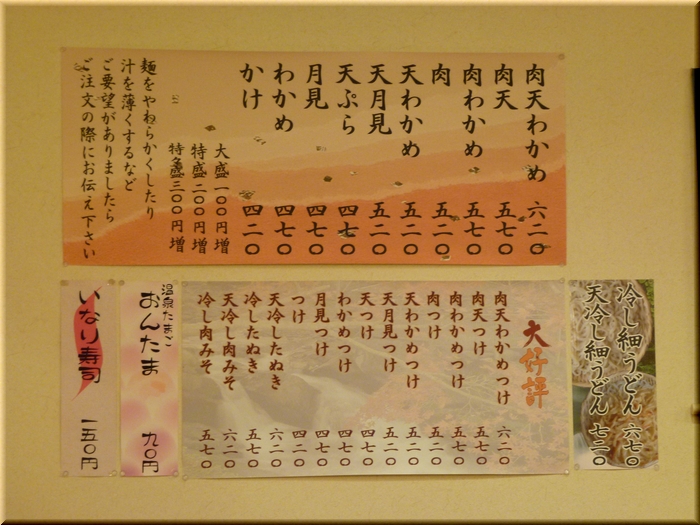 肉天わかめ 六二〇
肉天 五七〇
肉わかめ 五七〇
肉 五二〇
天わかめ 五二〇
天月見 五二〇
天ぷら 四七〇
月見 四七〇
わかめ 四七〇
かけ 四二〇
大盛 一〇〇円増
特盛 二〇〇円増
三〇〇円増
麺をやわらかくしたり
汁を薄くするなど
ご要望がありましたら
ご注文の際にお伝え下さい
冷し細うどん 六七〇
天冷し細うどん 七二〇
大好評
肉天わかめつけ 六二〇
肉天つけ 五七〇
肉わかめつけ 五七〇
肉つけ 五二〇
天わかめつけ 五二〇
天月見つけ 五二〇
天つけ 四七〇
わかめつけ 四七〇
月見つけ 四七〇
つけ 四二〇
天冷したぬき 六二〇
冷したぬき 五七〇
天冷し肉みそ 六二〇
冷し肉みそ 五七〇
温泉たまご
おんたま 九〇円
いなり寿司 一五〇円